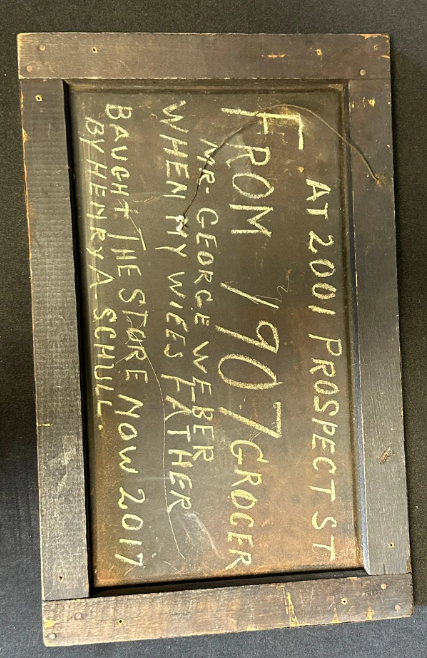 AT 2001 PROSPECT ST
FROM 1907 GROCER
MR- GEORGE WEBER
WHEN MY WIFES FATHER
BAUGHT THE STORE NOW 2017
BY HENRY A. SCHULL.